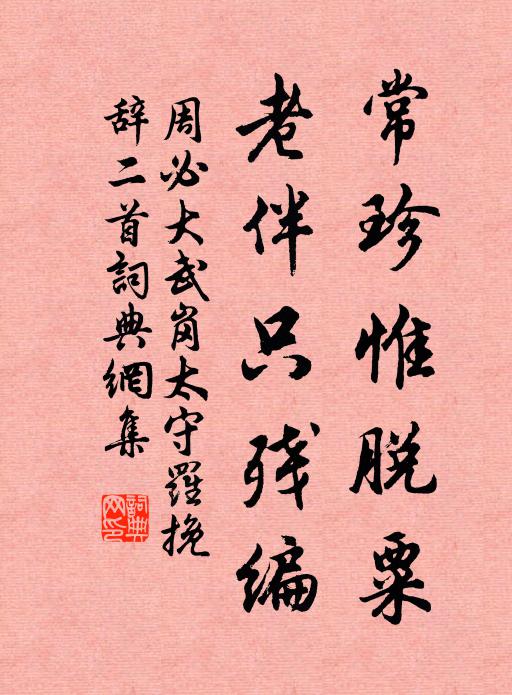 常珍惟脱粟
老伴只残编
周必大武岗太守羅挽
辞二首詞典網集
詞典網印